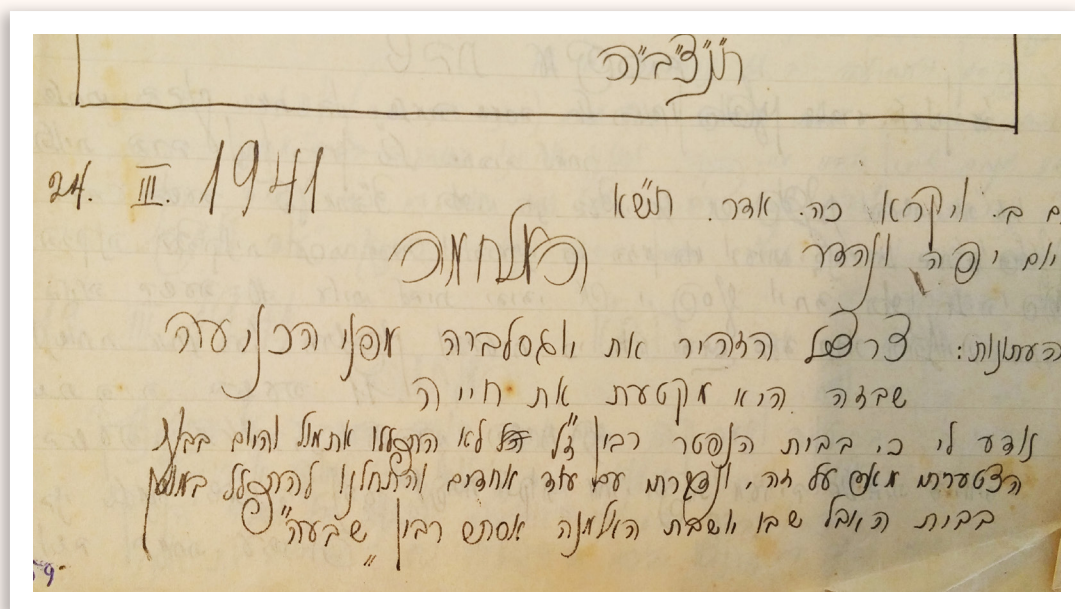 ת'נ'צ'ב'ה
24. III. 1941
ם ב. ויקרא כה. אדר. תש"א
יום יפה ונהדר
המלחמה
העתונות: צרצל הזהיר את יוגסלביה מפני הכניעה
שבזה היא מקטעת את חייה
נודע לי כי בבית הנפטר רבין ז"ל לא התפללו אתמול והיום בבקר
הצטערתי מאד על זה, ונדברתי עם עוד אחדים והתחלנו להתפלל
בבית האבל שבו יושבת האלמנה אסתר רבין "שבעה"